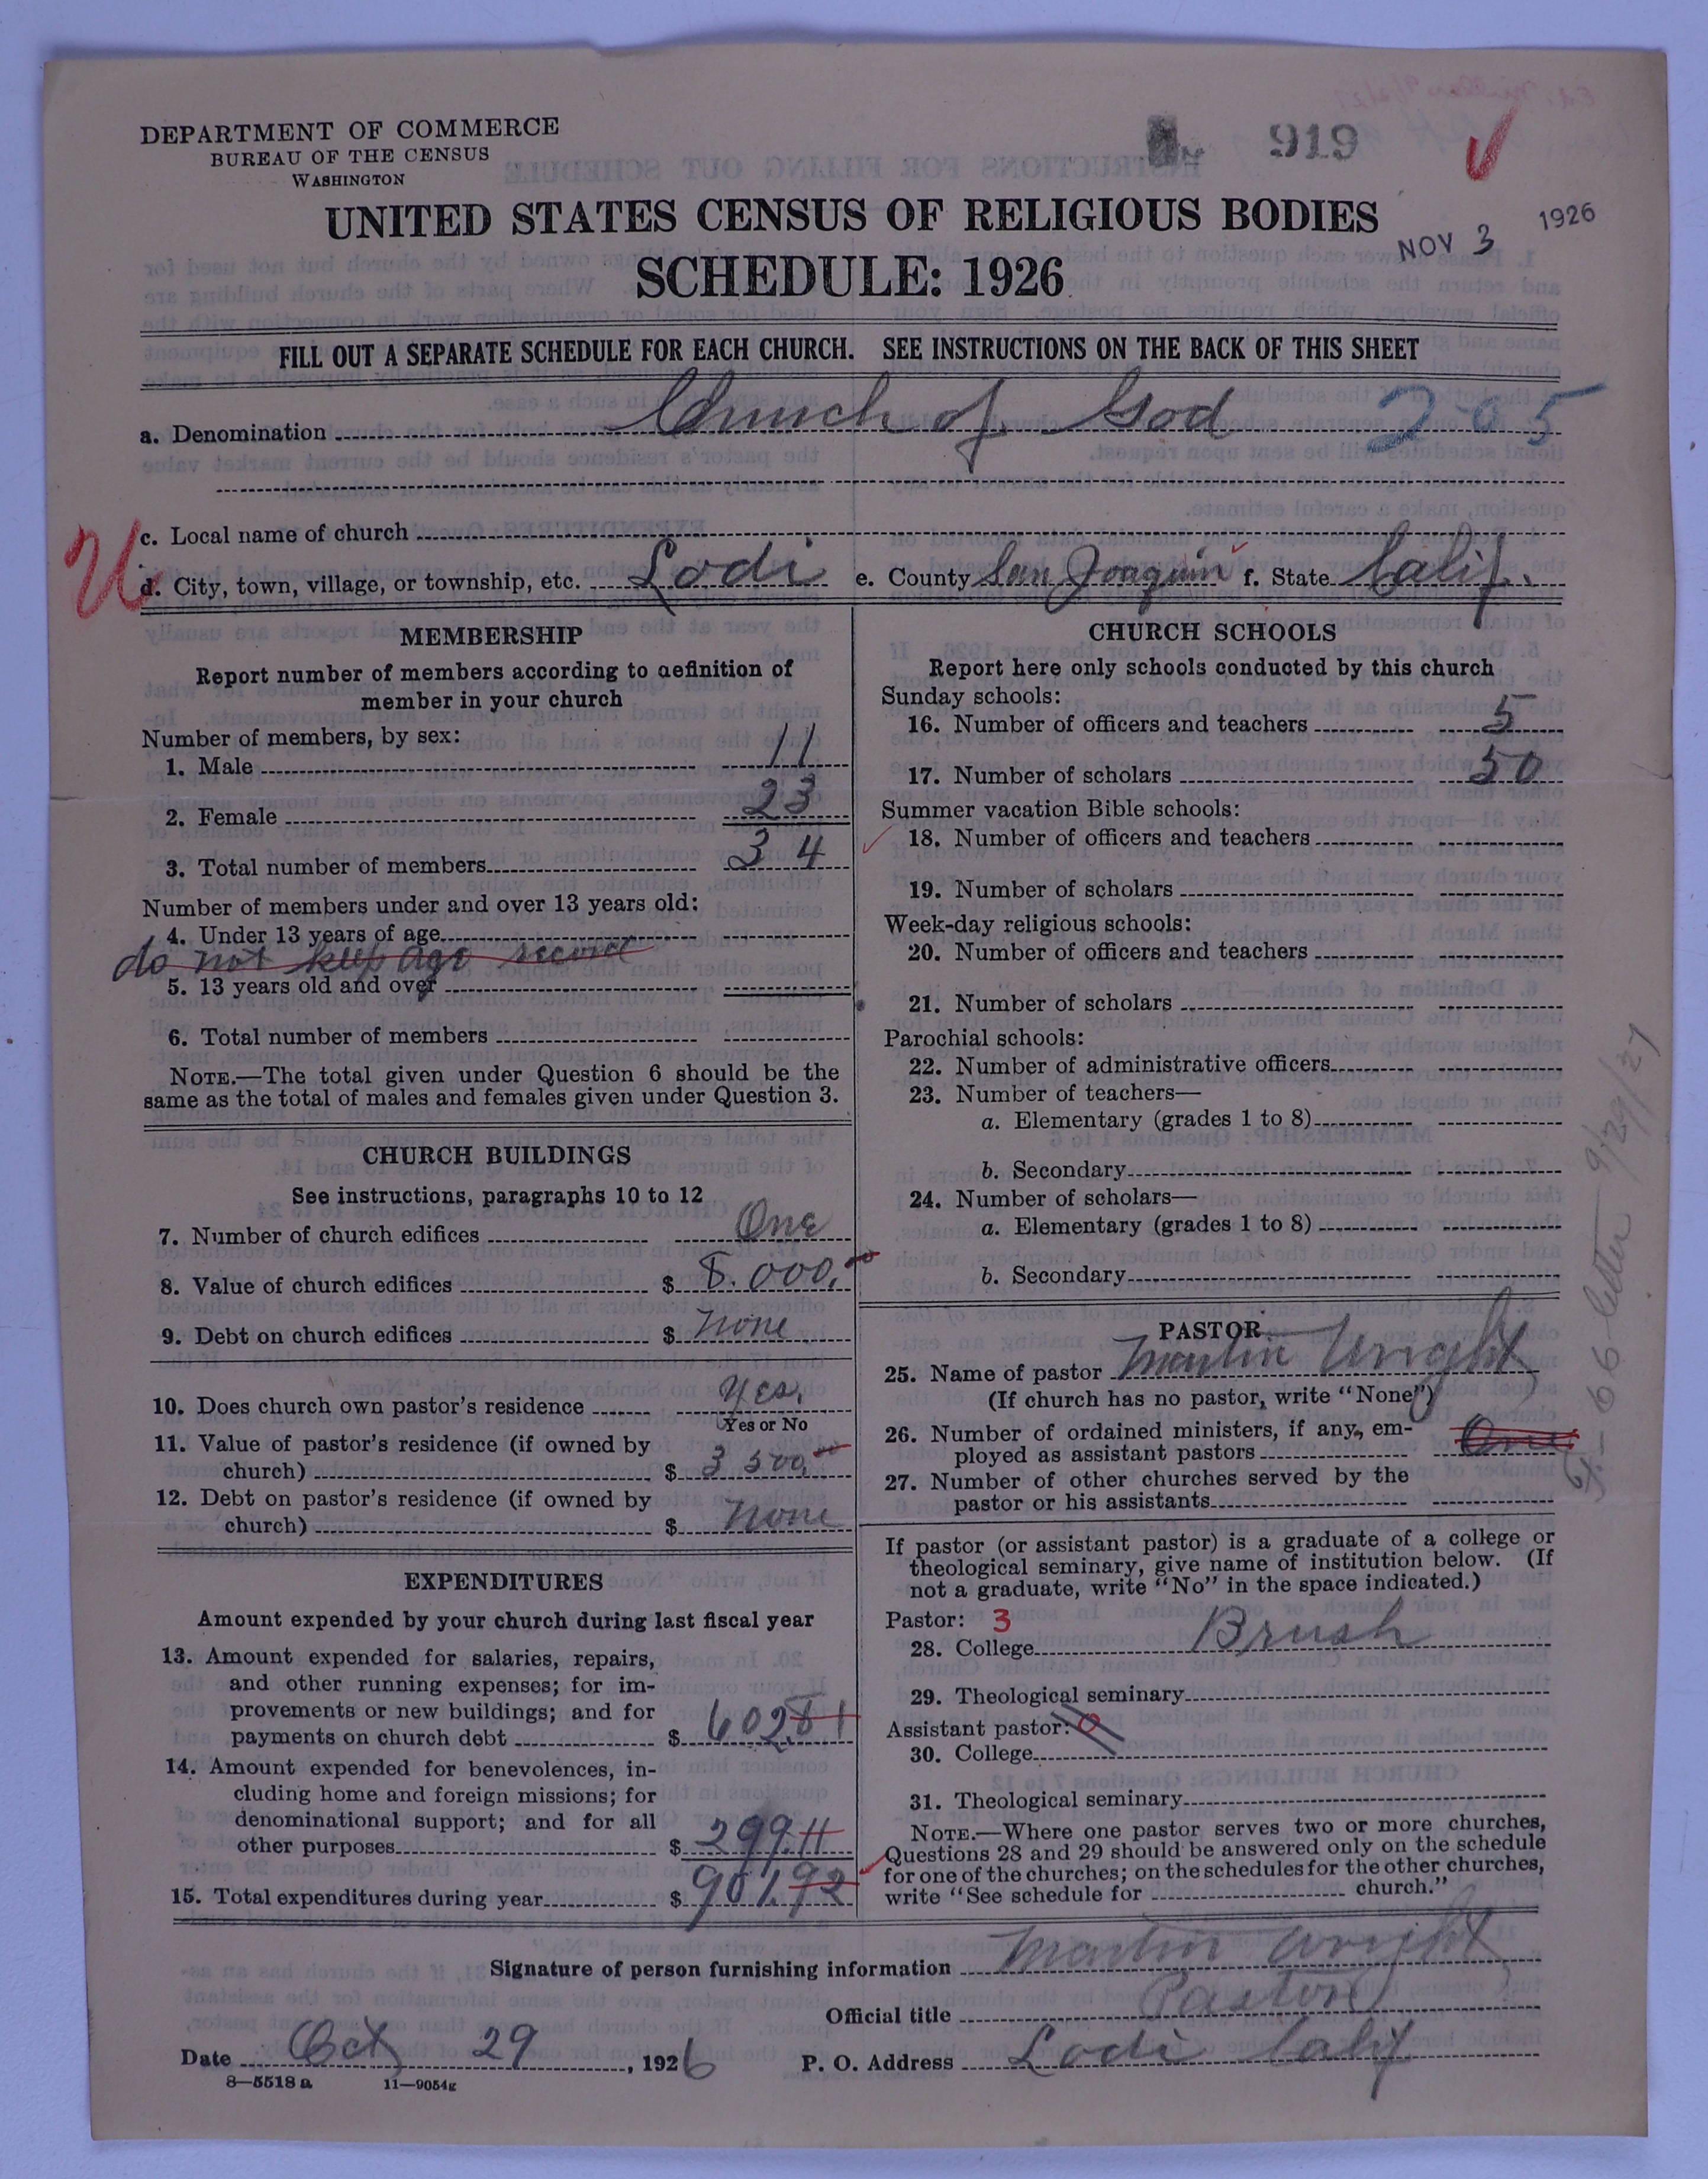 DEPARTMENT OF COMMERCE
BUREAU OF THE CENSUS
WASHINGTON
919
UNITED STATES CENSUS OF RELIGIOUS BODIES
NOV 3 1926
SCHEDULE: 1926
FILL OUT A SEPARATE SCHEDULE FOR EACH CHURCH. SEE INSTRUCTIONS ON THE BACK OF THIS SHEET
a. Denomination Church of God 205
c. Local name of church
d. City, town, village, or township, etc. Lodi e. County San Joaquin f. State Calif.
MEMBERSHIP
Report number of members according to definition of
member in your church
Number of members, by sex:
1. Male 11
2. Female 23
3. Total number of members 34
Number of members under and over 13 years old:
4. Under 13 years of age
do not keep age record
5. 13 years old and over
6. Total number of members
NOTE.—The total given under Question 6 should be the
same as the total of males and females given under Question 3.
CHURCH BUILDINGS
See instructions, paragraphs 10 to 12
7. Number of church edifices One
8. Value of church edifices $ 8.000,00
9. Debt on church edifices $ None
10. Does church own pastor's residence Yes.
Yes or No
11. Value of pastor's residence (if owned by
church) $ 3 500,00
12. Debt on pastor's residence (if owned by
church) $ None
EXPENDITURES
Amount expended by your church during last fiscal year
13. Amount expended for salaries, repairs,
and other running expenses; for im-
provements or new buildings; and for
payments on church debt $ 602.81
14. Amount expended for benevolences, in-
cluding home and foreign missions; for
denominational support; and for all
other purposes $ 299.11
15. Total expenditures during year $ 901.92
CHURCH SCHOOLS
Report here only schools conducted by this church
Sunday schools:
16. Number of officers and teachers 5
17. Number of scholars 50
Summer vacation Bible schools:
18. Number of officers and teachers
19. Number of scholars
Week-day religious schools:
20. Number of officers and teachers
21. Number of scholars
Parochial schools:
22. Number of administrative officers
23. Number of teachers—
a. Elementary (grades 1 to 8)
b. Secondary
24. Number of scholars—
a. Elementary (grades 1 to 8)
b. Secondary
PASTOR
25. Name of pastor Martin Wright
(If church has no pastor, write "None")
26. Number of ordained ministers, if any, em-
ployed as assistant pastors One
27. Number of other churches served by the
pastor or his assistants
If pastor (or assistant pastor) is a graduate of a college or
theological seminary, give name of institution below. (If
not a graduate, write "No" in the space indicated.)
Pastor: 3
28. College Brush
29. Theological seminary
Assistant pastor: 0
30. College
31. Theological seminary
NOTE.—Where one pastor serves two or more churches,
Questions 28 and 29 should be answered only on the schedule
for one of the churches; on the schedules for the other churches,
write "See schedule for church."
letter 9/29/27
Signature of person furnishing information Martin Wright
Official title Pastor
Date Oct 29, 1926 P. O. Address Lodi Calif
8—5518 a 11—9054g